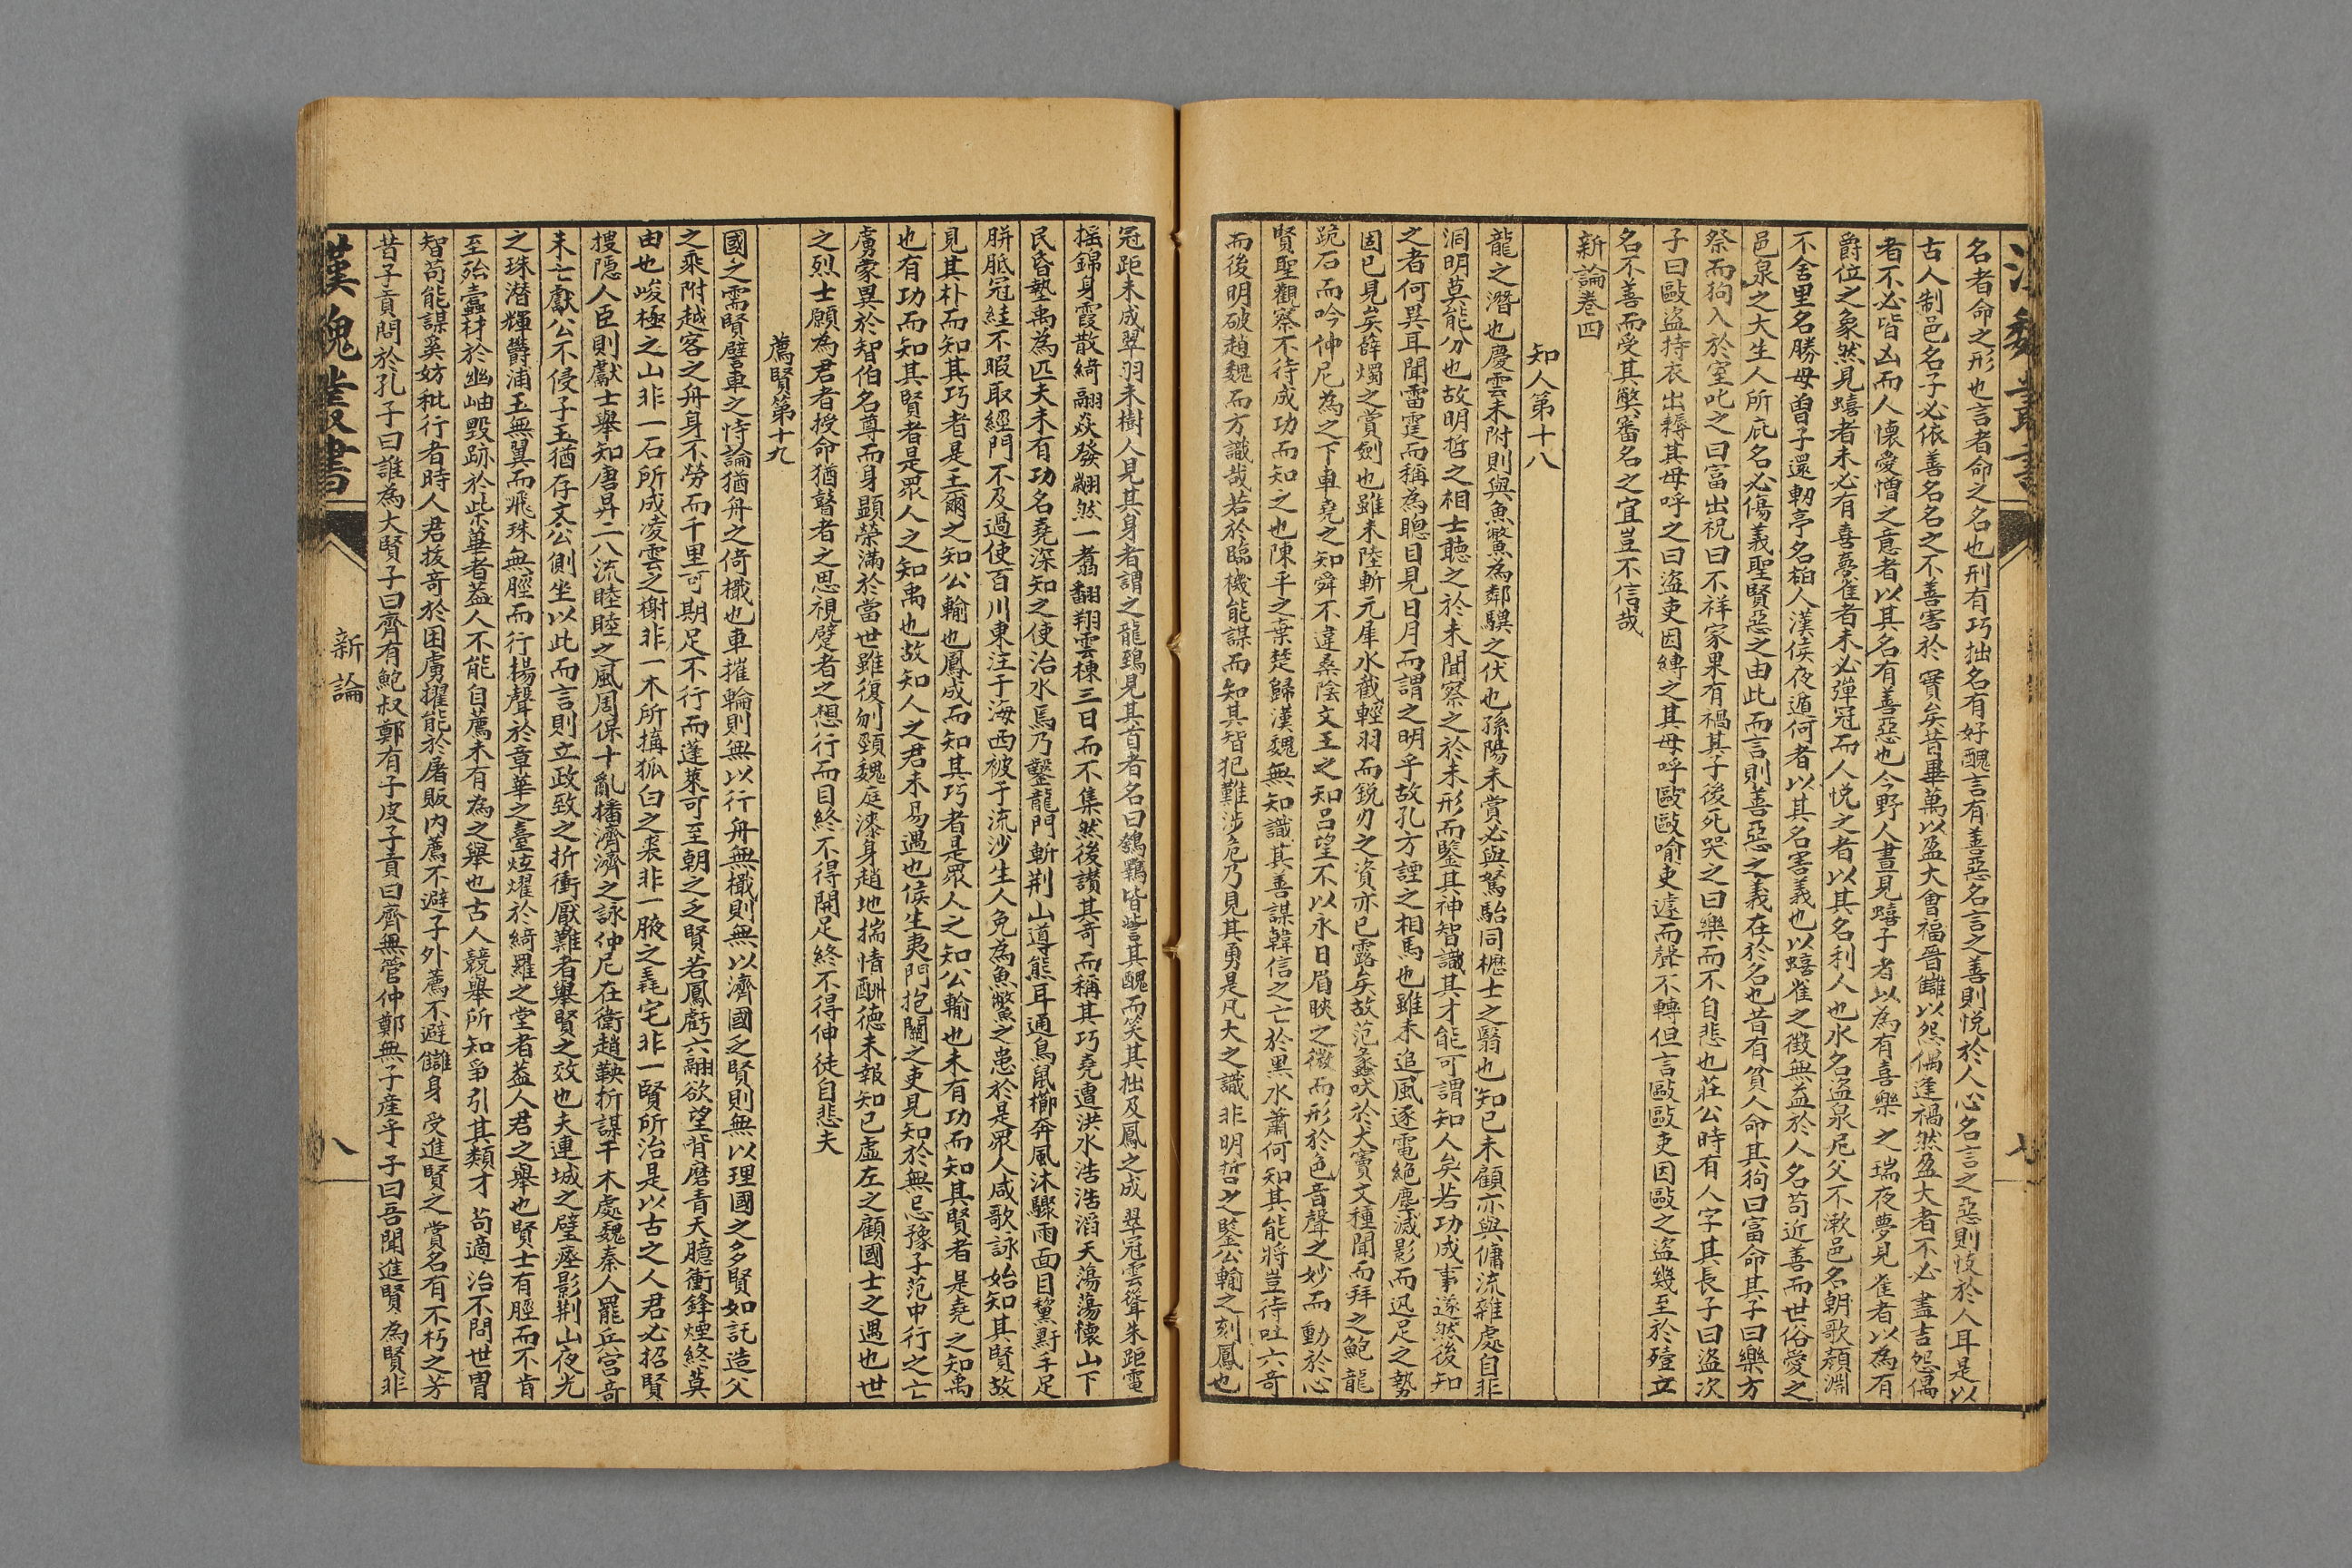 名者命之形也言者命之名也形有巧拙名有好醜言有善惡名言之善則悅於人心名言之惡則忮於人耳是以
古人制邑名子必依善名名之不善害於實矣昔畢萬以盈大會福晉讎以怨偶逢禍然盈大者不必盡吉怨偶
者不必皆凶而人懷愛憎之意者以其名有善惡也今野人晝見蟢子者以為有喜樂之瑞夜夢見雀者以為有
爵位之象然見蟢者未必有喜夢雀者未必彈冠而人悅之者以其名利人也水名盜泉尼父不漱邑名朝歌顏淵
不舍里名勝母曾子還軔亭名柏人漢侯夜遁何者以其名害義也以蟢雀之徵無益於人名苟近善而世俗愛之
邑泉之大生人所庇名必傷義聖賢惡之由此而言則善惡之義在於名也昔有貧人命其狗曰富命其子曰樂方
祭而狗入於室叱之曰富出祝曰不祥家果有禍其子後死哭之曰樂而不自悲也莊公時有人字其長子曰盜次
子曰毆盜持衣出耨其母呼之曰盜吏因縛之其母呼毆毆喻吏遽而聲不轉但言毆毆吏因毆之盜幾至於殪立
名不善而受其弊審名之宜豈不信哉
新論卷四
知人第十八
龍之潛也慶雲未附則與魚鱉為鄰驥之伏也孫陽未賞必與駑駘同櫪士之翳也知己未顧亦與傭流雜處自非
洞明莫能分也故明哲之相士聽之於未聞察之於未形而鑒其神智識其才能可謂知人矣若功成事遂然後知
之者何異耳聞雷霆而稱為聰目見日月而謂之明乎故孔方諲之相馬也雖未追風逐電絕塵滅影而迅足之勢
固已見矣薛燭之賞劍也雖未陸斬元犀水截輕羽而銳刃之資亦已露矣故范蠡吠於犬竇文種聞而拜之鮑龍
跪石而吟仲尼為之下車堯之知舜不違桑陰文王之知呂望不以永日眉睫之徵而形於色音聲之妙而動於心
賢聖觀察不待成功而知之也陳平之棄楚歸漢魏無知識其善謀韓信之亡於黑水蕭何知其能將豈待吐六奇
而後明破趙魏而方識哉若於臨機能謀而知其智犯難涉危乃見其勇是凡夫之識非明哲之鑒公輸之刻鳳也
冠距未成翠羽未樹人見其身者謂之龍鵄見其首者名曰鵷鶵皆訾其醜而笑其拙及鳳之成翠冠雲聳朱距電
搖錦身霞散綺翮焱發翽然一翥翻翔雲棟三日而不集然後讃其奇而稱其巧堯遭洪水浩浩滔天蕩蕩懷山下
民昏墊禹為匹夫未有功名堯深知之使治水焉乃鑿龍門斬荊山導熊耳通鳥鼠櫛奔風沐驟雨面目黧黚手足
胼胝冠絓不暇取經門不及過使百川東注于海西被于流沙生人免為魚鱉之患於是眾人咸歌詠始知其賢故
見其朴而知其巧者是王爾之知公輸也鳳成而知其巧者是眾人之知公輸也未有功而知其賢者是堯之知禹
也有功而知其賢者是眾人之知禹也故知人之君未易遇也侯生夷門抱關之吏見知於無忌豫子范中行之亡
虜蒙異於智伯名尊而身顯榮滿於當世雖復刎頸魏庭漆身趙地揣情酬德未報知己虛左之顧國士之遇也世
之烈士願為君者授命猶瞽者之思視躄者之想行而目終不得開足終不得伸徒自悲夫
薦賢第十九
國之需賢譬車之恃論猶舟之倚檝也車摧輪則無以行舟無檝則無以濟國乏賢則無以理國之多賢如託造父
之乘附越客之舟身不勞而千里可期足不行而蓬萊可至朝之乏賢若鳳虧六翮欲望背磨青天臆衝鋒煙終莫
由也峻極之山非一石所成凌雲之榭非一木所搆狐白之裘非一腋之毳宅非一賢所治是以古之人君必招賢
搜隱人臣則獻士舉知唐昇二八流睦睦之風周保十亂播濟濟之詠仲尼在衛趙鞅折謀干木處魏秦人罷兵宮奇
未亡獻公不侵子玉猶存文公側坐以此而言則立政致之折衝厭難者舉賢之效也夫連城之璧瘞影荊山夜光
之珠潛輝鬱浦玉無翼而飛珠無脛而行揚聲於章華之臺炫燿於綺羅之堂者葢人君之舉也賢士有脛而不肯
至殆蠹材於幽岫毀跡於柴蓽者葢人不能自薦未有為之舉也古人競舉所知爭引其類才苟適治不問世冑
智苟能謀奚妨秕行者時人君拔奇於困虜擢能於屠販內薦不避子外薦不避讎身受進賢之賞名有不朽之芳
昔子貢問於孔子曰誰為大賢子曰齊有鮑叔鄭有子皮子貢曰齊無管仲鄭無子產乎子曰吾聞進賢為賢非
漢魏叢書
新論
八